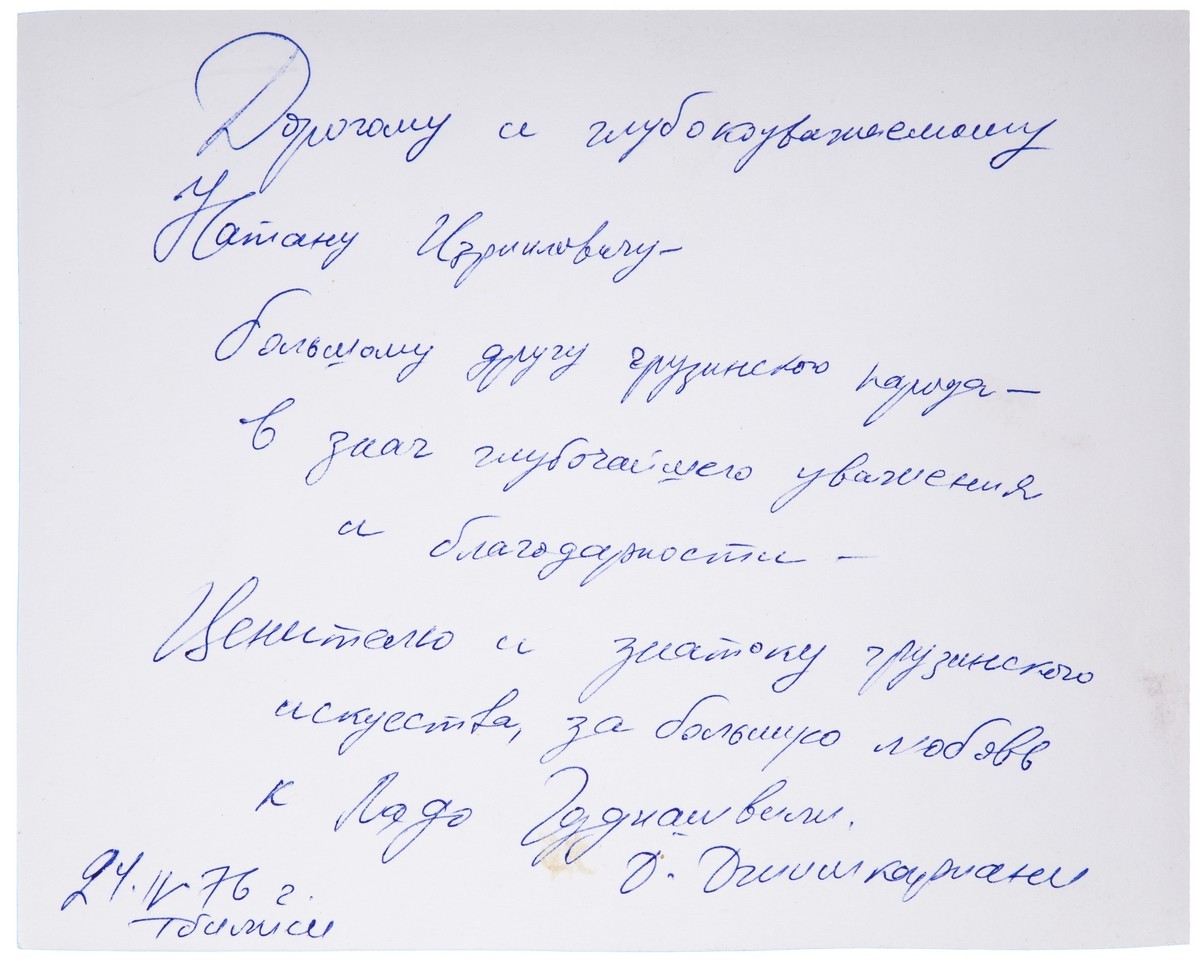 Дорогому и глубокоуважаемому
Натану Изриловичу –
большому другу грузинского народа –
в знач глубочайшего уважения
и благодарности –
Ценителю и знатоку грузинского
искуества, за большую любовь
к Ладо Гудиашвили.
Д.
24. IV 76 г.
Тбилиси